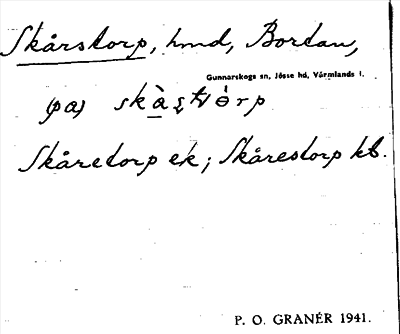 Skårstorp, hmd, Bordan,
Gunnarskogs sn, Jösse hd, Värmlands l.
(pa)
Skåretorp ek; Skårestorp kb.
P. O. GRANÉR 1941.